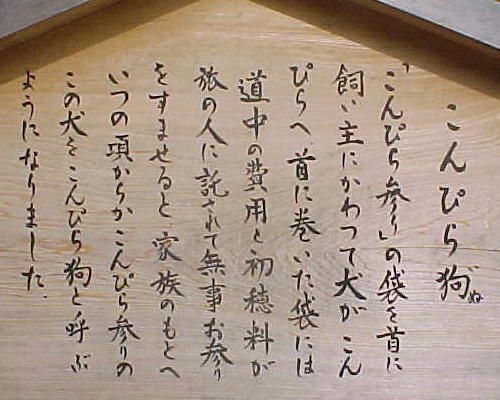 こんぴら狗
「こんぴら参り」の袋を首に
飼い主にかわって犬がこん
ぴらへ 首に巻いた袋には
道中の費用と初穂料が
旅の人に託されて無事お参り
をすませると 家族のもとへ
いつの頃からかこんぴら参りの
この犬をこんぴら狗と呼ぶ
ようになりました.